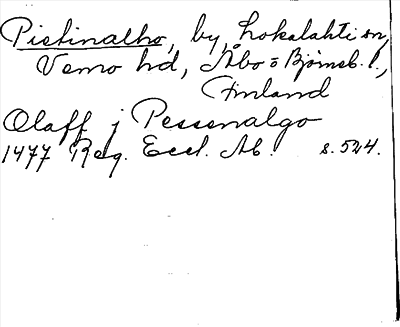 Pistinalho, by, Lokalahti sn,
Vemo hd, Åbo o Björneb. l.,
Finland
Olaff j Pessenalgo
1477 Reg. Eccl. Ab. s. 524.